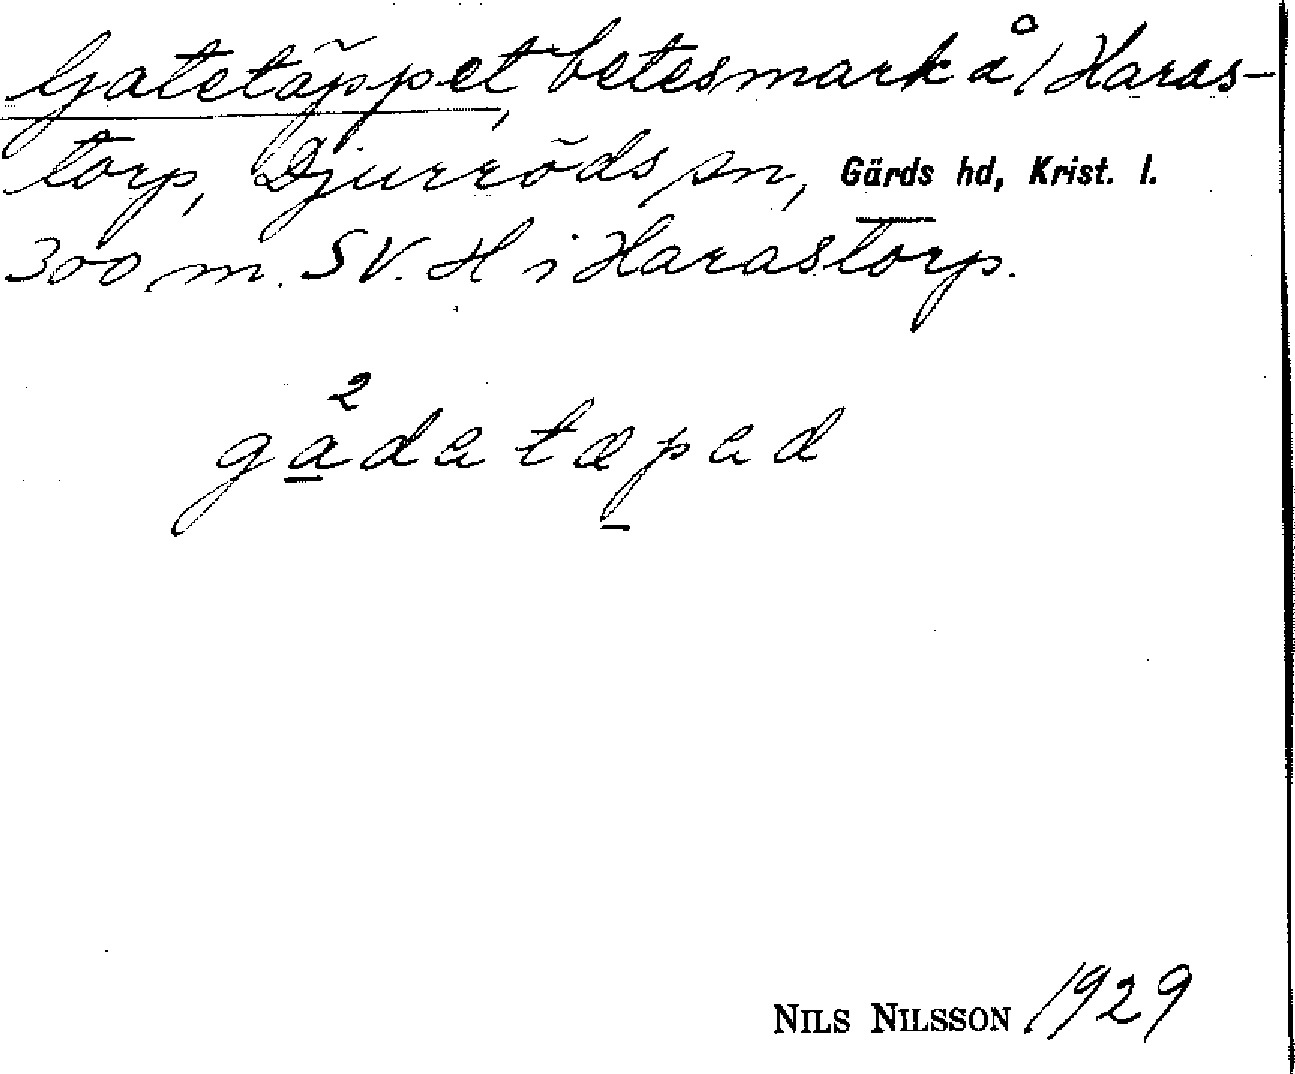 Gatetäppet, betesmark å 1 Haras-
torp, Djurröds sn, Gärds hd, Krist. l.
300 m. SV. H i Harastorp.
2
gadatæpad
NILS NILSSON 1929